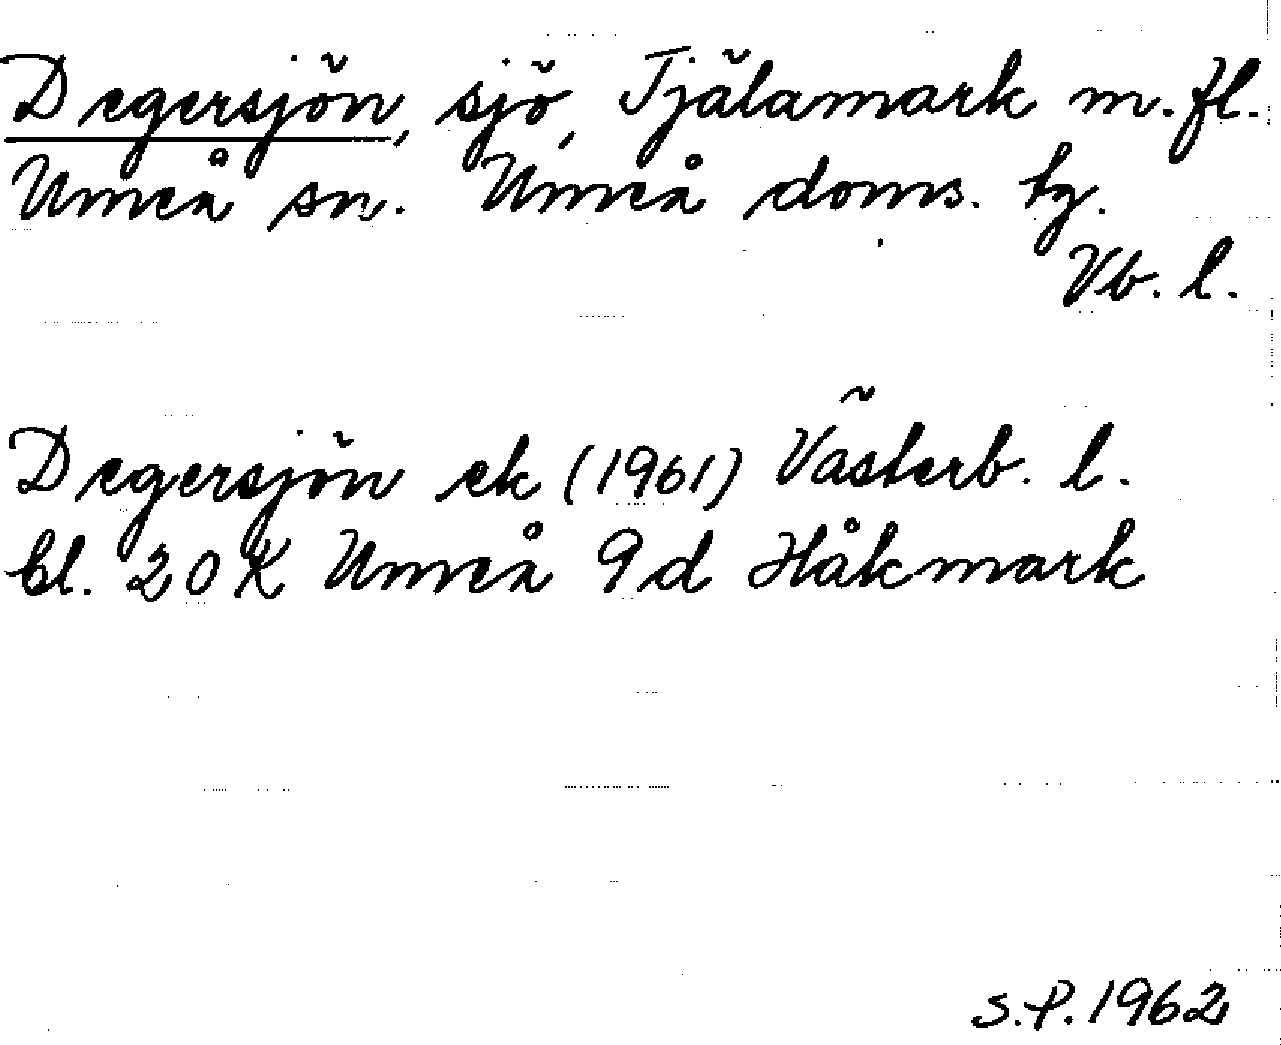 Degersjön, sjö, Tjälamark m.fl.
Umeå sn. Umeå doms. tg.
Vb. l.
Degersjön ek (1961) Västerb. l.
bl. 20K Umeå 9d Håkmark
S.P. 1962